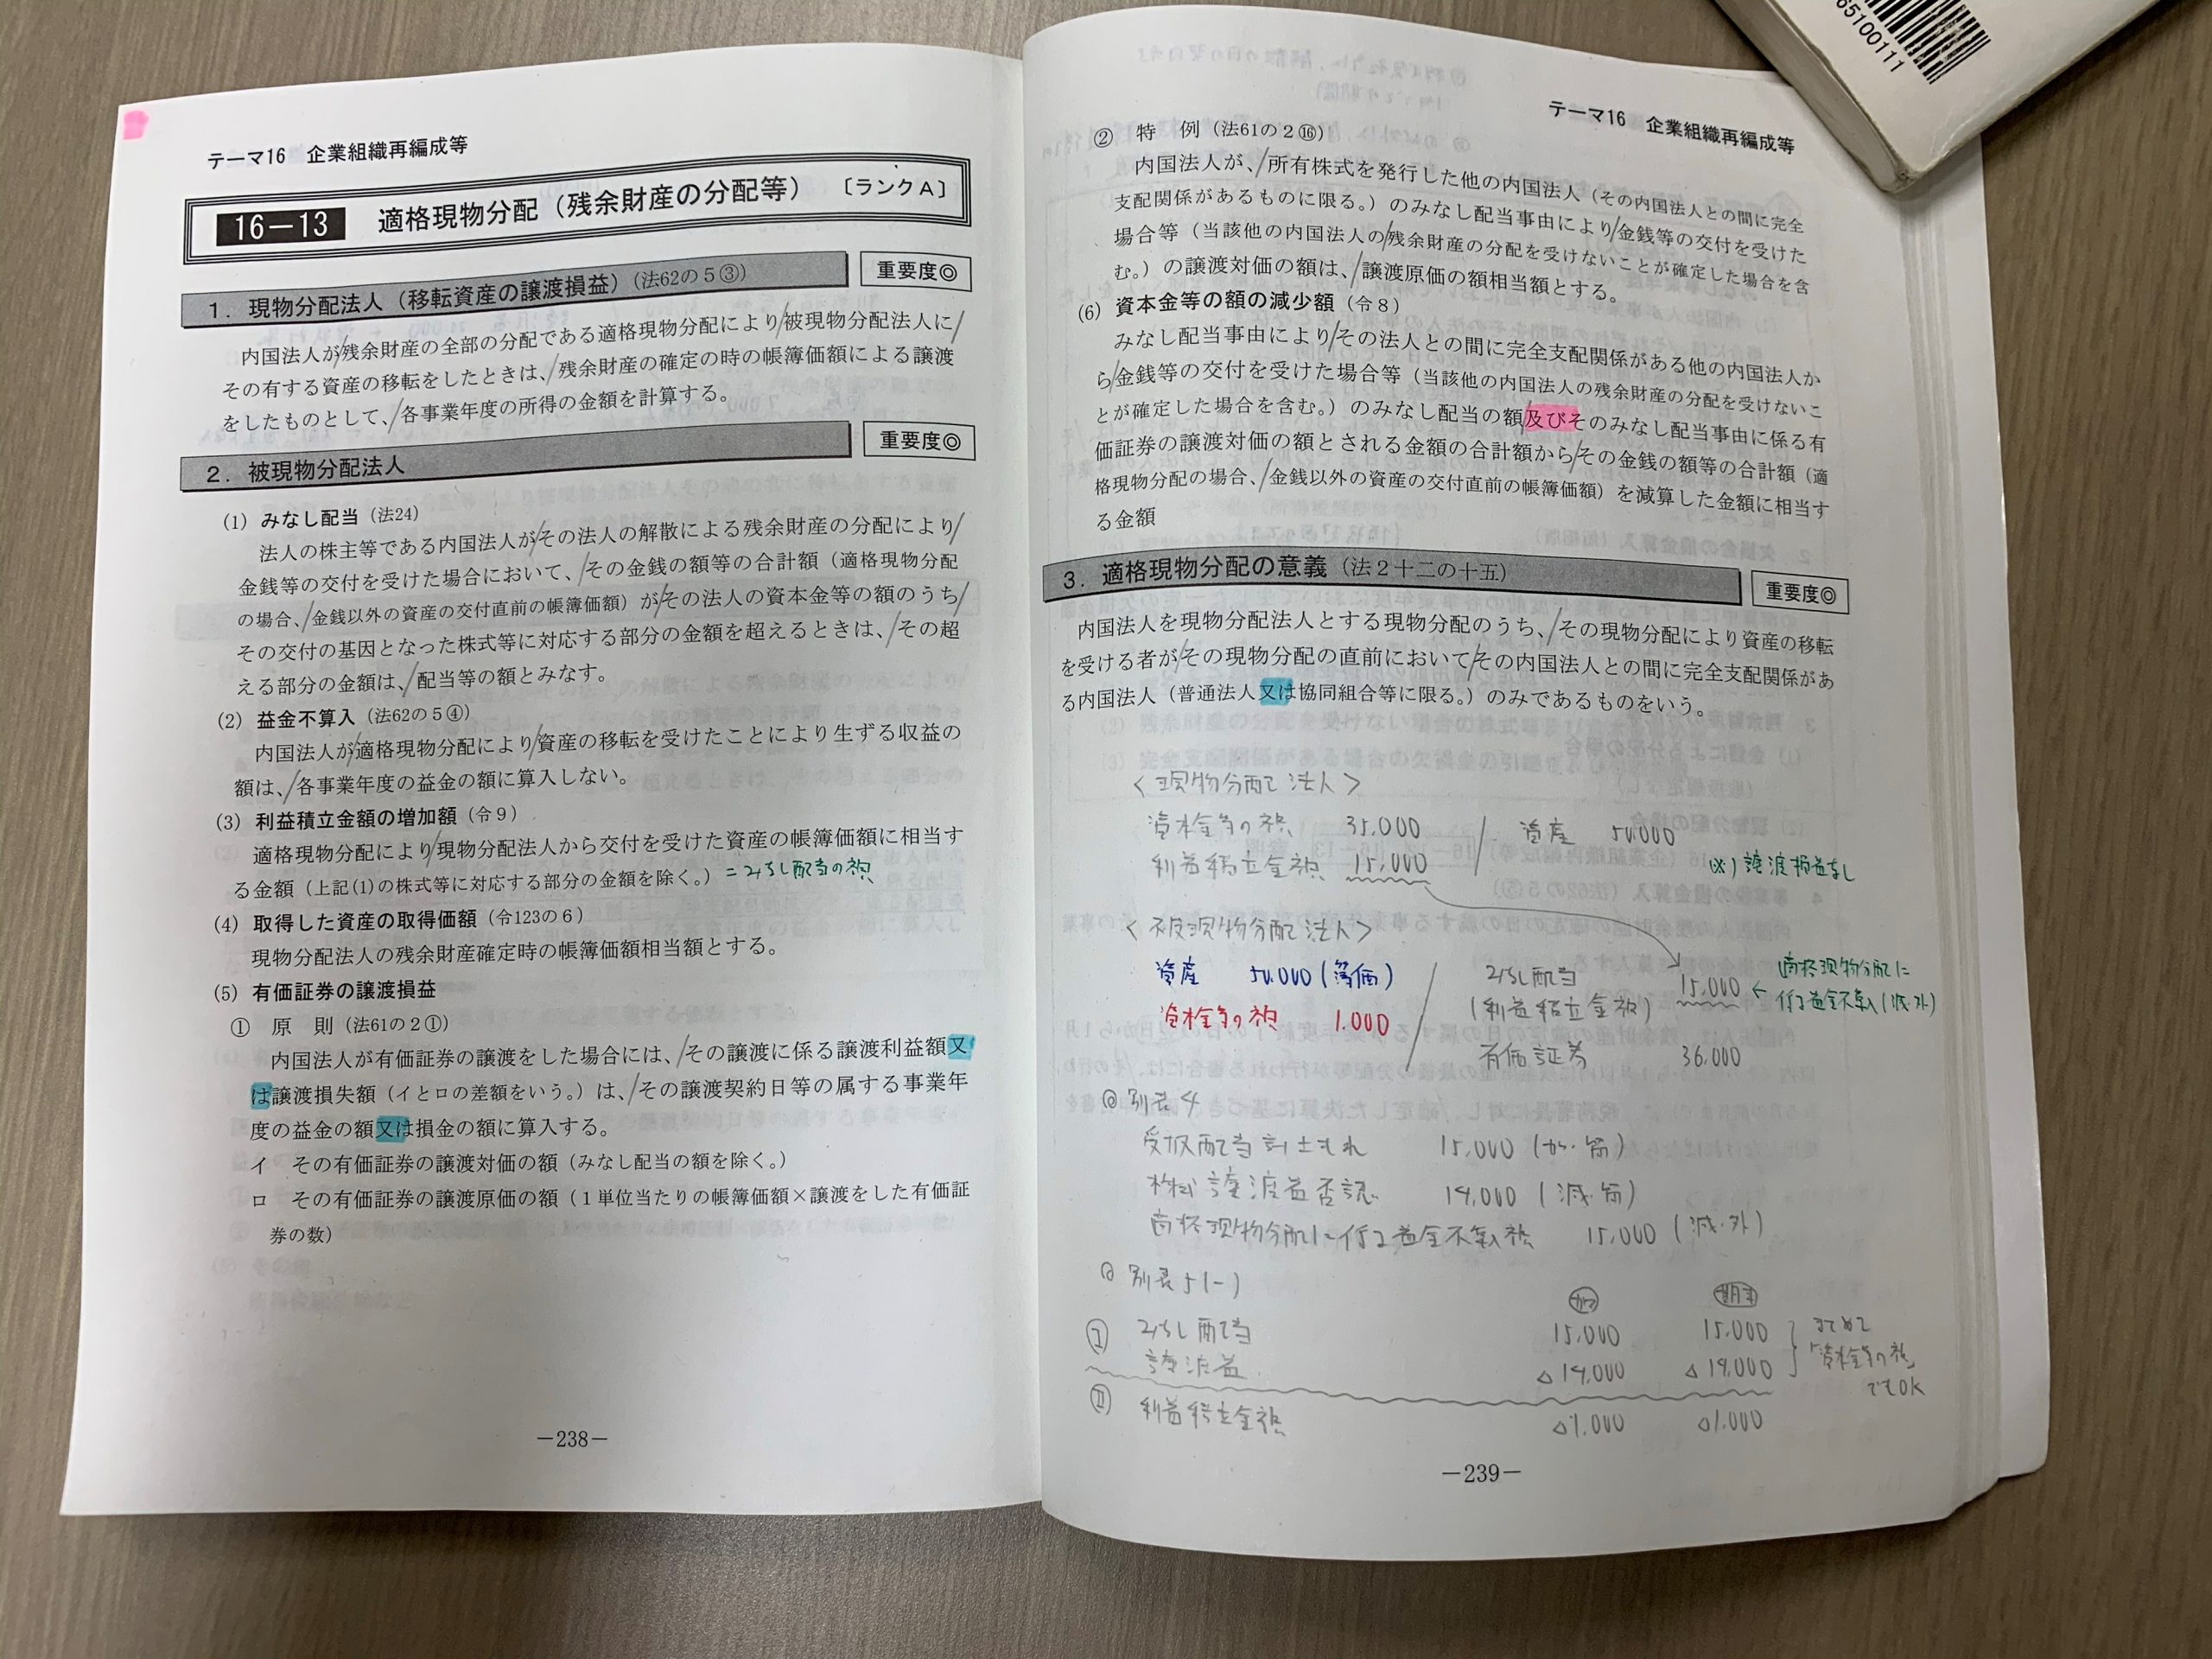 テーマ16　企業組織再編成等
16－13　適格現物分配（残余財産の分配等）〔ランクＡ〕
1．現物分配法人（移転資産の譲渡損益）（法62の５③）　重要度◎
内国法人が/残余財産の全部の分配である適格現物分配により/被現物分配法人に/
その有する資産の移転をしたときは、/残余財産の確定の時の帳簿価額による譲渡
をしたものとして、/各事業年度の所得の金額を計算する。
2．被現物分配法人　重要度◎
(1)　みなし配当（法24）
法人の株主等である内国法人が/その法人の解散による残余財産の分配により/
金銭等の交付を受けた場合において、/その金銭の額等の合計額（適格現物分配
の場合、/金銭以外の資産の交付直前の帳簿価額）が/その法人の資本金等の額のうち/
その交付の基因となった株式等に対応する部分の金額を超えるときは、/その超
える部分の金額は、/配当等の額とみなす。
(2)　益金不算入（法62の５④）
内国法人が/適格現物分配により/資産の移転を受けたことにより生ずる収益の
額は、/各事業年度の益金の額に算入しない。
(3)　利益積立金額の増加額（令９）
適格現物分配により/現物分配法人から交付を受けた資産の帳簿価額に相当す
る金額（上記(1)の株式等に対応する部分の金額を除く。）＝みなし配当の額
(4)　取得した資産の取得価額（令123の６）
現物分配法人の残余財産確定時の帳簿価額相当額とする。
(5)　有価証券の譲渡損益
①　原　則（法61の２①）
内国法人が有価証券の譲渡をした場合には、/その譲渡に係る譲渡利益額又
は譲渡損失額（イとロの差額をいう。）は、/その譲渡契約日等の属する事業年
度の益金の額又は損金の額に算入する。
イ　その有価証券の譲渡対価の額（みなし配当の額を除く。）
ロ　その有価証券の譲渡原価の額（１単位当たりの帳簿価額×譲渡をした有価証
券の数）
－238－
65100111
テーマ16　企業組織再編成等
②　特　例（法61の２⑯）
内国法人が、/所有株式を発行した他の内国法人（その内国法人との間に完全
支配関係があるものに限る。）のみなし配当事由により/金銭等の交付を受けた
場合等（当該他の内国法人の/残余財産の分配を受けないことが確定した場合を含
む。）の譲渡対価の額は、/譲渡原価の額相当額とする。
(6)　資本金等の額の減少額（令８）
みなし配当事由により/その法人との間に完全支配関係がある他の内国法人か
ら/金銭等の交付を受けた場合等（当該他の内国法人の残余財産の分配を受けないこ
とが確定した場合を含む。）のみなし配当の額/及びそのみなし配当事由に係る有
価証券の譲渡対価の額とされる金額の合計額から/その金銭の額等の合計額（適
格現物分配の場合、/金銭以外の資産の交付直前の帳簿価額）を減算した金額に相当す
る金額
3．適格現物分配の意義（法２十二の十五）　重要度◎
内国法人を現物分配法人とする現物分配のうち、/その現物分配により資産の移転
を受ける者が/その現物分配の直前において/その内国法人との間に完全支配関係があ
る内国法人（普通法人又は協同組合等に限る。）のみであるものをいう。
＜現物分配法人＞
資本金等の額　35,000　/　資産　50,000
利益積立金額　15,000　(※)譲渡損益なし
＜被現物分配法人＞
資産　50,000（簿価）　/　みなし配当　15,000　←　適格現物分配に
（利益積立金額）　係る益金不算入（減・外）
資本金等の額　1,000
有価証券　36,000
◎別表４
受取配当計上もれ　15,000（加・留）
株式譲渡益否認　14,000（減・留）
適格現物分配に係る益金不算入額　15,000（減・外）
◎別表５(一)
㋕加　期末
Ⅰ　みなし配当　15,000　15,000　まとめて
譲渡益　△14,000　△14,000　「資本金等の額」
でもOK
Ⅱ　利益積立金額　△1,000　△1,000
－239－